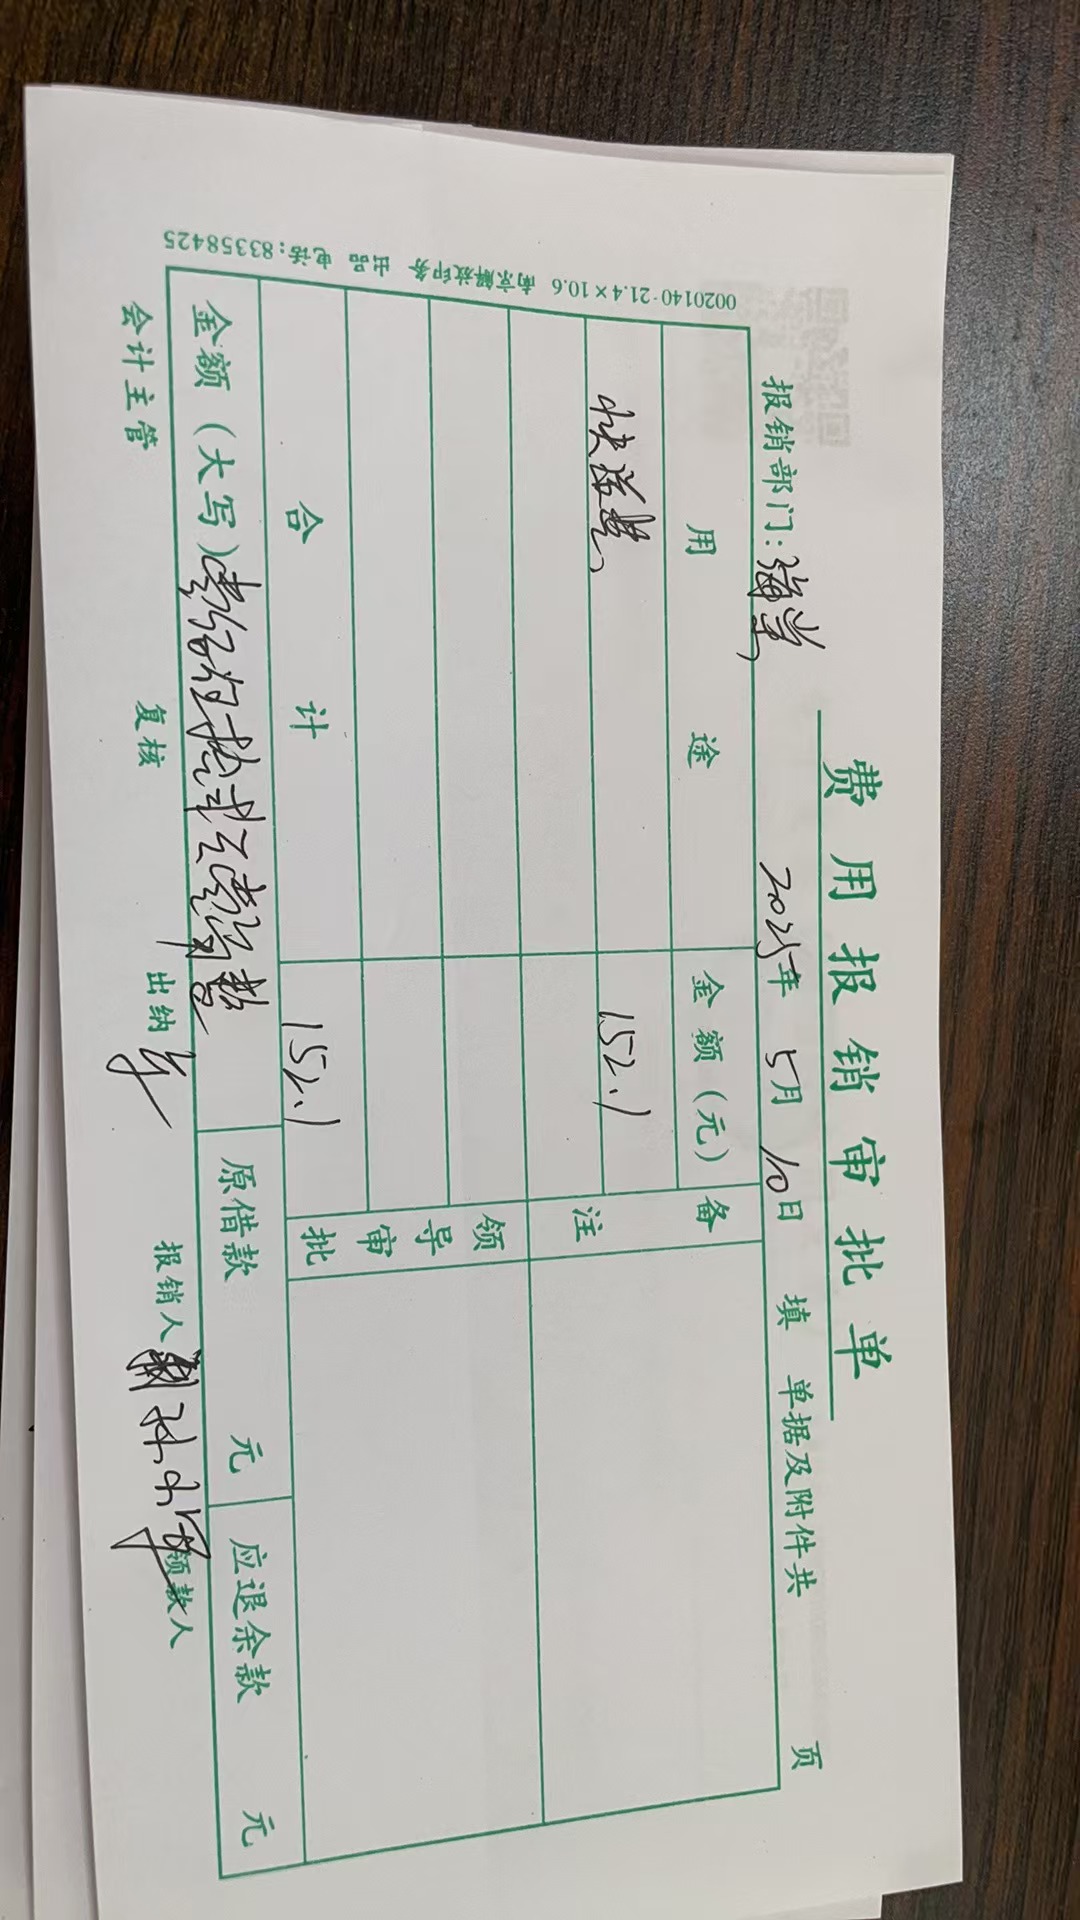 费用报销审批单
报销部门: 2025年 5月 10日 填 单据及附件共 页
用途 金额(元) 备注
快递费 152.1
领导审批
合计 152.1
金额(大写)壹佰伍拾贰元壹角整 原借款 元 应退余款 元
会计主管 复核 出纳 报销人 领款人
0020140·21.4×10.6 南京解放印务 出品 电话:83358425